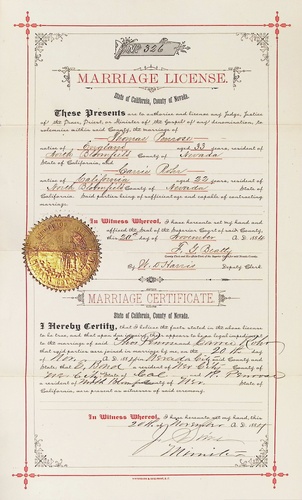 No. 326
MARRIAGE LICENSE.
State of California, County of Nevada.
These Presents are to authorize and license any Judge, Justice
of the Peace, Priest, or Minister of the Gospel of any denomination, to
solemnize within said County, the marriage of
Thomas Penrose
native of England aged 33 years, resident of
North Bloomfield County of Nevada
State of California, and
Carrie Rohr
native of California aged 22 years, resident of
North Bloomfield County of Nevada State of
California. Said parties being of sufficient age and capable of contracting
marriage.
In Witness Whereof, I have hereunto set my hand and
affixed the Seal of the Superior Court of said County,
this 20th day of November A.D. 1884
F. G. Beatty
County Clerk and Ex-officio Clerk of the Superior Court in and for said Nevada County.
By W. D. Harris Deputy Clerk
MARRIAGE CERTIFICATE
State of California, County of Nevada.
I Hereby Certify, that I believe the facts stated in the above license
to be true, and that upon due inquiry there appears to be no legal impediment
to the marriage of said Thos Penrose and Carrie Rohr
that said parties were joined in marriage by me on the 20th day
of Nov. A.D. 1884 in Nevada City and County and
State; that Bond a resident of Nev City County of
Nev State of Cal and
a resident of North Bloom County of Nev. State of
California, were present as witnesses of said ceremony.
In Witness Whereof, I have hereunto set my hand, this
20th of November A.D. 1884
J. Sims
Minister